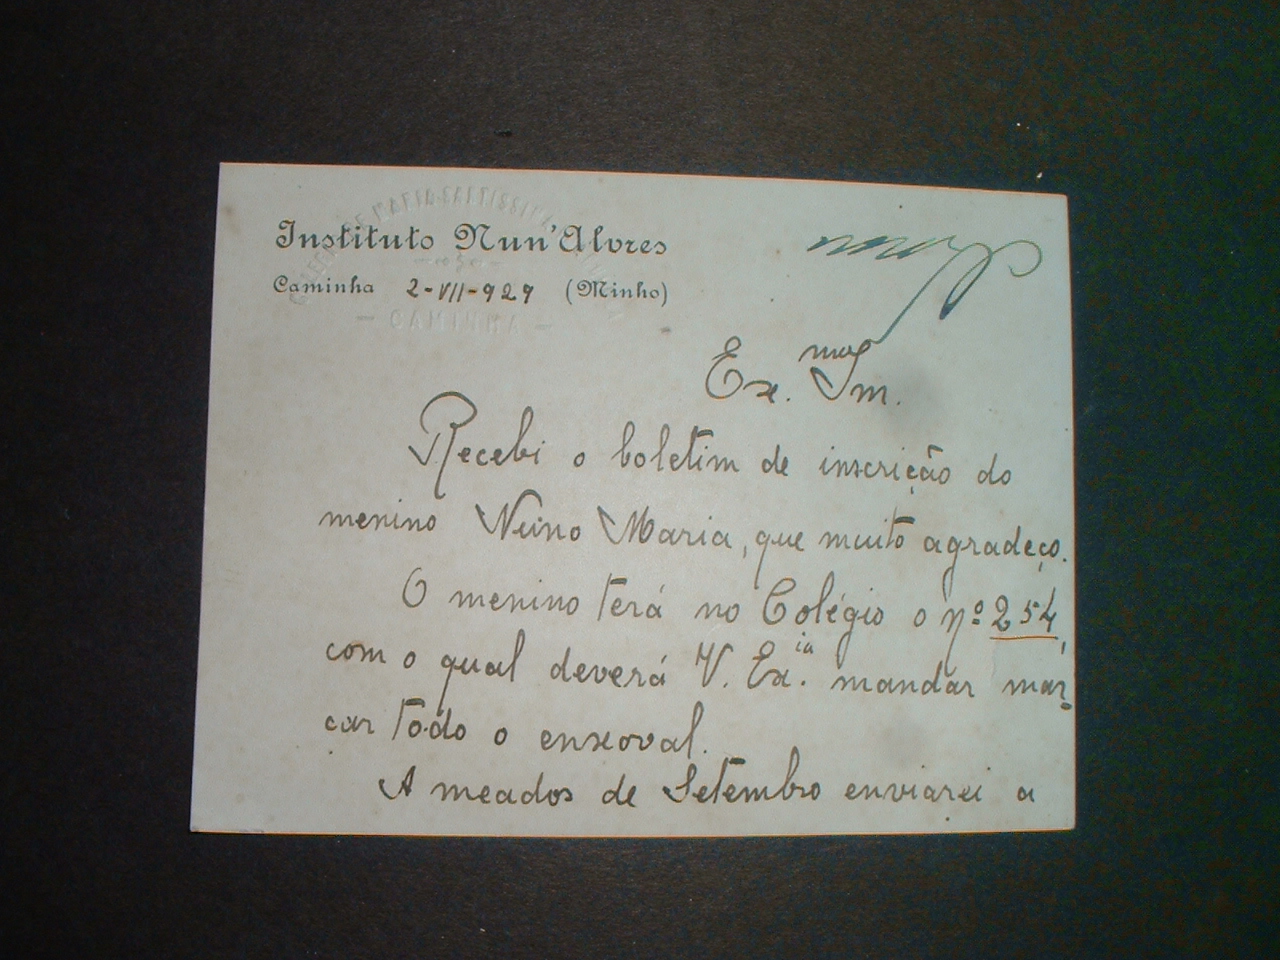 Instituto Nun'Alvres
Caminha 2-VII-929 (Minho)
CAMINHA
Ex.mo Sm.
Recebi o boletim de inscrição do
menino Nuno Maria, que muito agradeço.
O menino terá no Colégio o nº 254,
com o qual deverá V. Ex.ia mandar mar-
car todo o enxoval.
A meados de Setembro enviarei a